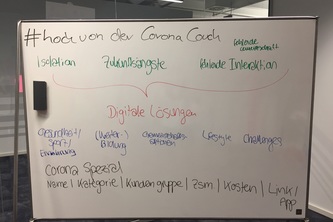 #hoch von der Corona Couch
Isolation Zukunftsängste fehlende Interaktion
Digitale Lösungen
Gesundheit/ (Weiter-) Lifestyle Challenges
Sport/ Bildung
Ernährung
Corona Spezial
Name | Kategorie | Kundengruppe | Zsm | Kosten | Link/
App